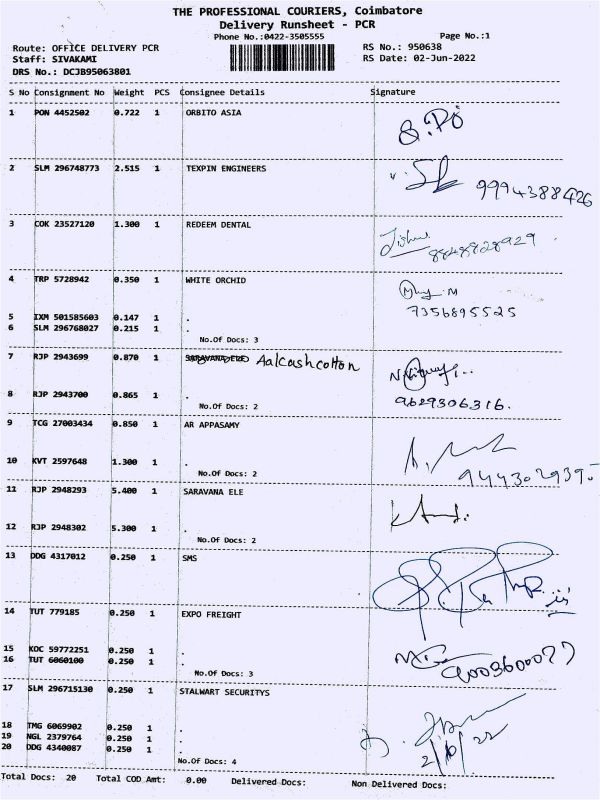 THE PROFESSIONAL COURIERS, Coimbatore
Delivery Runsheet - PCR
Phone No.:0422-3505555 Page No.:1
Route: OFFICE DELIVERY PCR RS No.: 950638
Staff: SIVAKAMI RS Date: 02-Jun-2022
DRS No.: DCJB95063801
S No Consignment No Weight PCS Consignee Details Signature
1 PON 4452502 0.722 1 ORBITO ASIA
2 SLM 296748773 2.515 1 TEXPIN ENGINEERS
9994388426
3 COK 23527120 1.300 1 REDEEM DENTAL
8848928929
4 TRP 5728942 0.350 1 WHITE ORCHID
7356895525
5 IXM 501585603 0.147 1 .
6 SLM 296768027 0.215 1 .
No.Of Docs: 3
7 RJP 2943699 0.870 1 SARAVANA ELE Aalcashcotton
8 RJP 2943700 0.865 1 .
9629306316.
No.Of Docs: 2
9 TCG 27003434 0.850 1 AR APPASAMY
10 KVT 2597648 1.300 1 .
No.Of Docs: 2
11 RJP 2948293 5.400 1 SARAVANA ELE
12 RJP 2948302 5.300 1 .
No.Of Docs: 2
13 DDG 4317012 0.250 1 SMS
14 TUT 779185 0.250 1 EXPO FREIGHT
15 KOC 59772251 0.250 1 .
16 TUT 6060100 0.250 1 .
9003600077
No.Of Docs: 3
17 SLM 296715130 0.250 1 STALWART SECURITYS
18 TMG 6069902 0.250 1 .
19 NGL 2379764 0.250 1 .
20 DDG 4340087 0.250 1 .
2/6/22
No.Of Docs: 4
Total Docs: 20 Total COD Amt: 0.00 Delivered Docs: Non Delivered Docs: